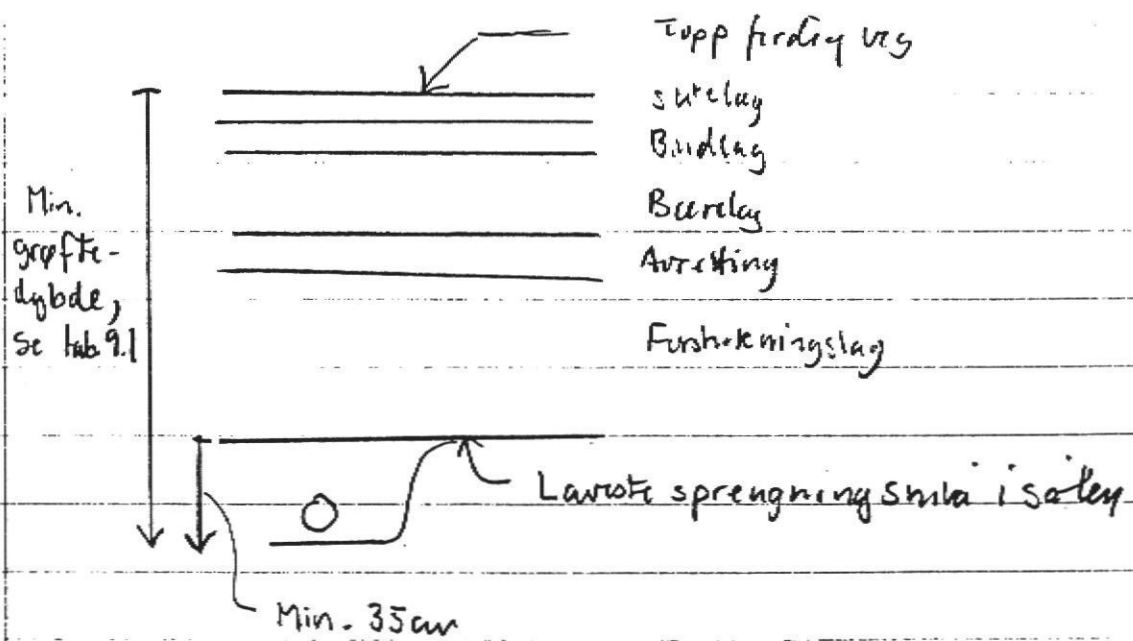 Topp ferdig veg
slitelag
Bindlag
Bærelag
Avretting
Forsterkningslag
Min.
grøfte-
dybde,
Se tab 9.1
Laveste sprengningsnivå i sålen
Min. 35cm